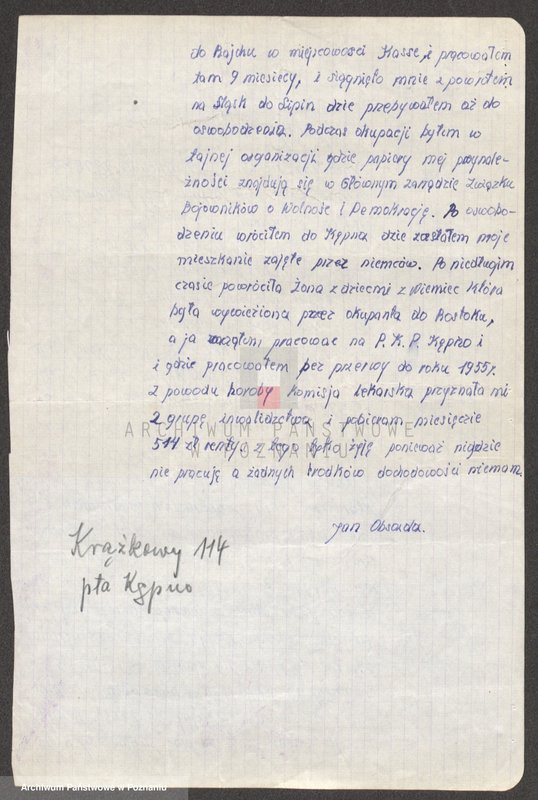 do Rajchu w miejscowości Kasse, i pracowałem
tam 9 miesięcy, i siągnięło mnie z powrotem
na Śląsk do Lipin dzie przebywałem aż do
oswobodzenia. Podczas okupacji byłem w
tajnej organizacji gdzie papiery mej przynale-
żności znajdują się w Głównym zarządzie Związku
Bojowników o Wolność i Demokrację. Po oswobo-
dzeniu wróciłem do Kępna dzie zastałem moje
mieszkanie zajęte przez niemców. Po niedługim
czasie powróciła żona z dziecmi z Niemiec która
była wywieziona przez okupanta do Rostoku,
a ja zacząłem pracowac na P.K.P. Kępno i
i gdzie pracowałem bez przerwy do roku 1955r.
Z powodu horoby Komisja Lekarska przyznała mi
2 grupę inwalidztwa i pobieram miesięcznie
514 zł renty, z tego tylko żyję ponieważ nigdzie
nie pracuję a żadnych środków dochodowości niemam.
Jan Obsada.
Krążkowy 114
pta Kępno
ARCHIWUM PAŃSTWOWE
W POZNANIU
Archiwum Państwowe w Poznaniu